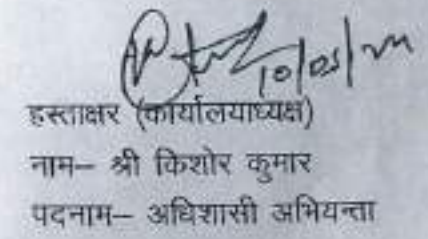 हस्ताक्षर (कार्यालयाध्यक्ष)
नाम– श्री किशोर कुमार
पदनाम– अधिशासी अभियन्ता